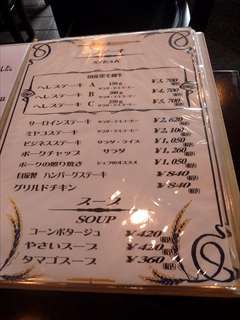 ステーキ
STEAK
国産黒毛和牛
ヘレステーキ A 150g ¥5,700
ヘレステーキ B 200g ¥4,700
ヘレステーキ C 150g ¥3,700
サーロインステーキ ¥2,620
ミヤコステーキ ¥2,100
ビジネスステーキ サラダ・ライス ¥1,050
ポークチャップ サラダ ¥1,260
ポークの照り焼き ¥1,050
自家製 ハンバーグステーキ ¥840
グリルドチキン ¥840
スープ
SOUP
コーンポタージュ ¥420
やさいスープ ¥420
タマゴスープ ¥360